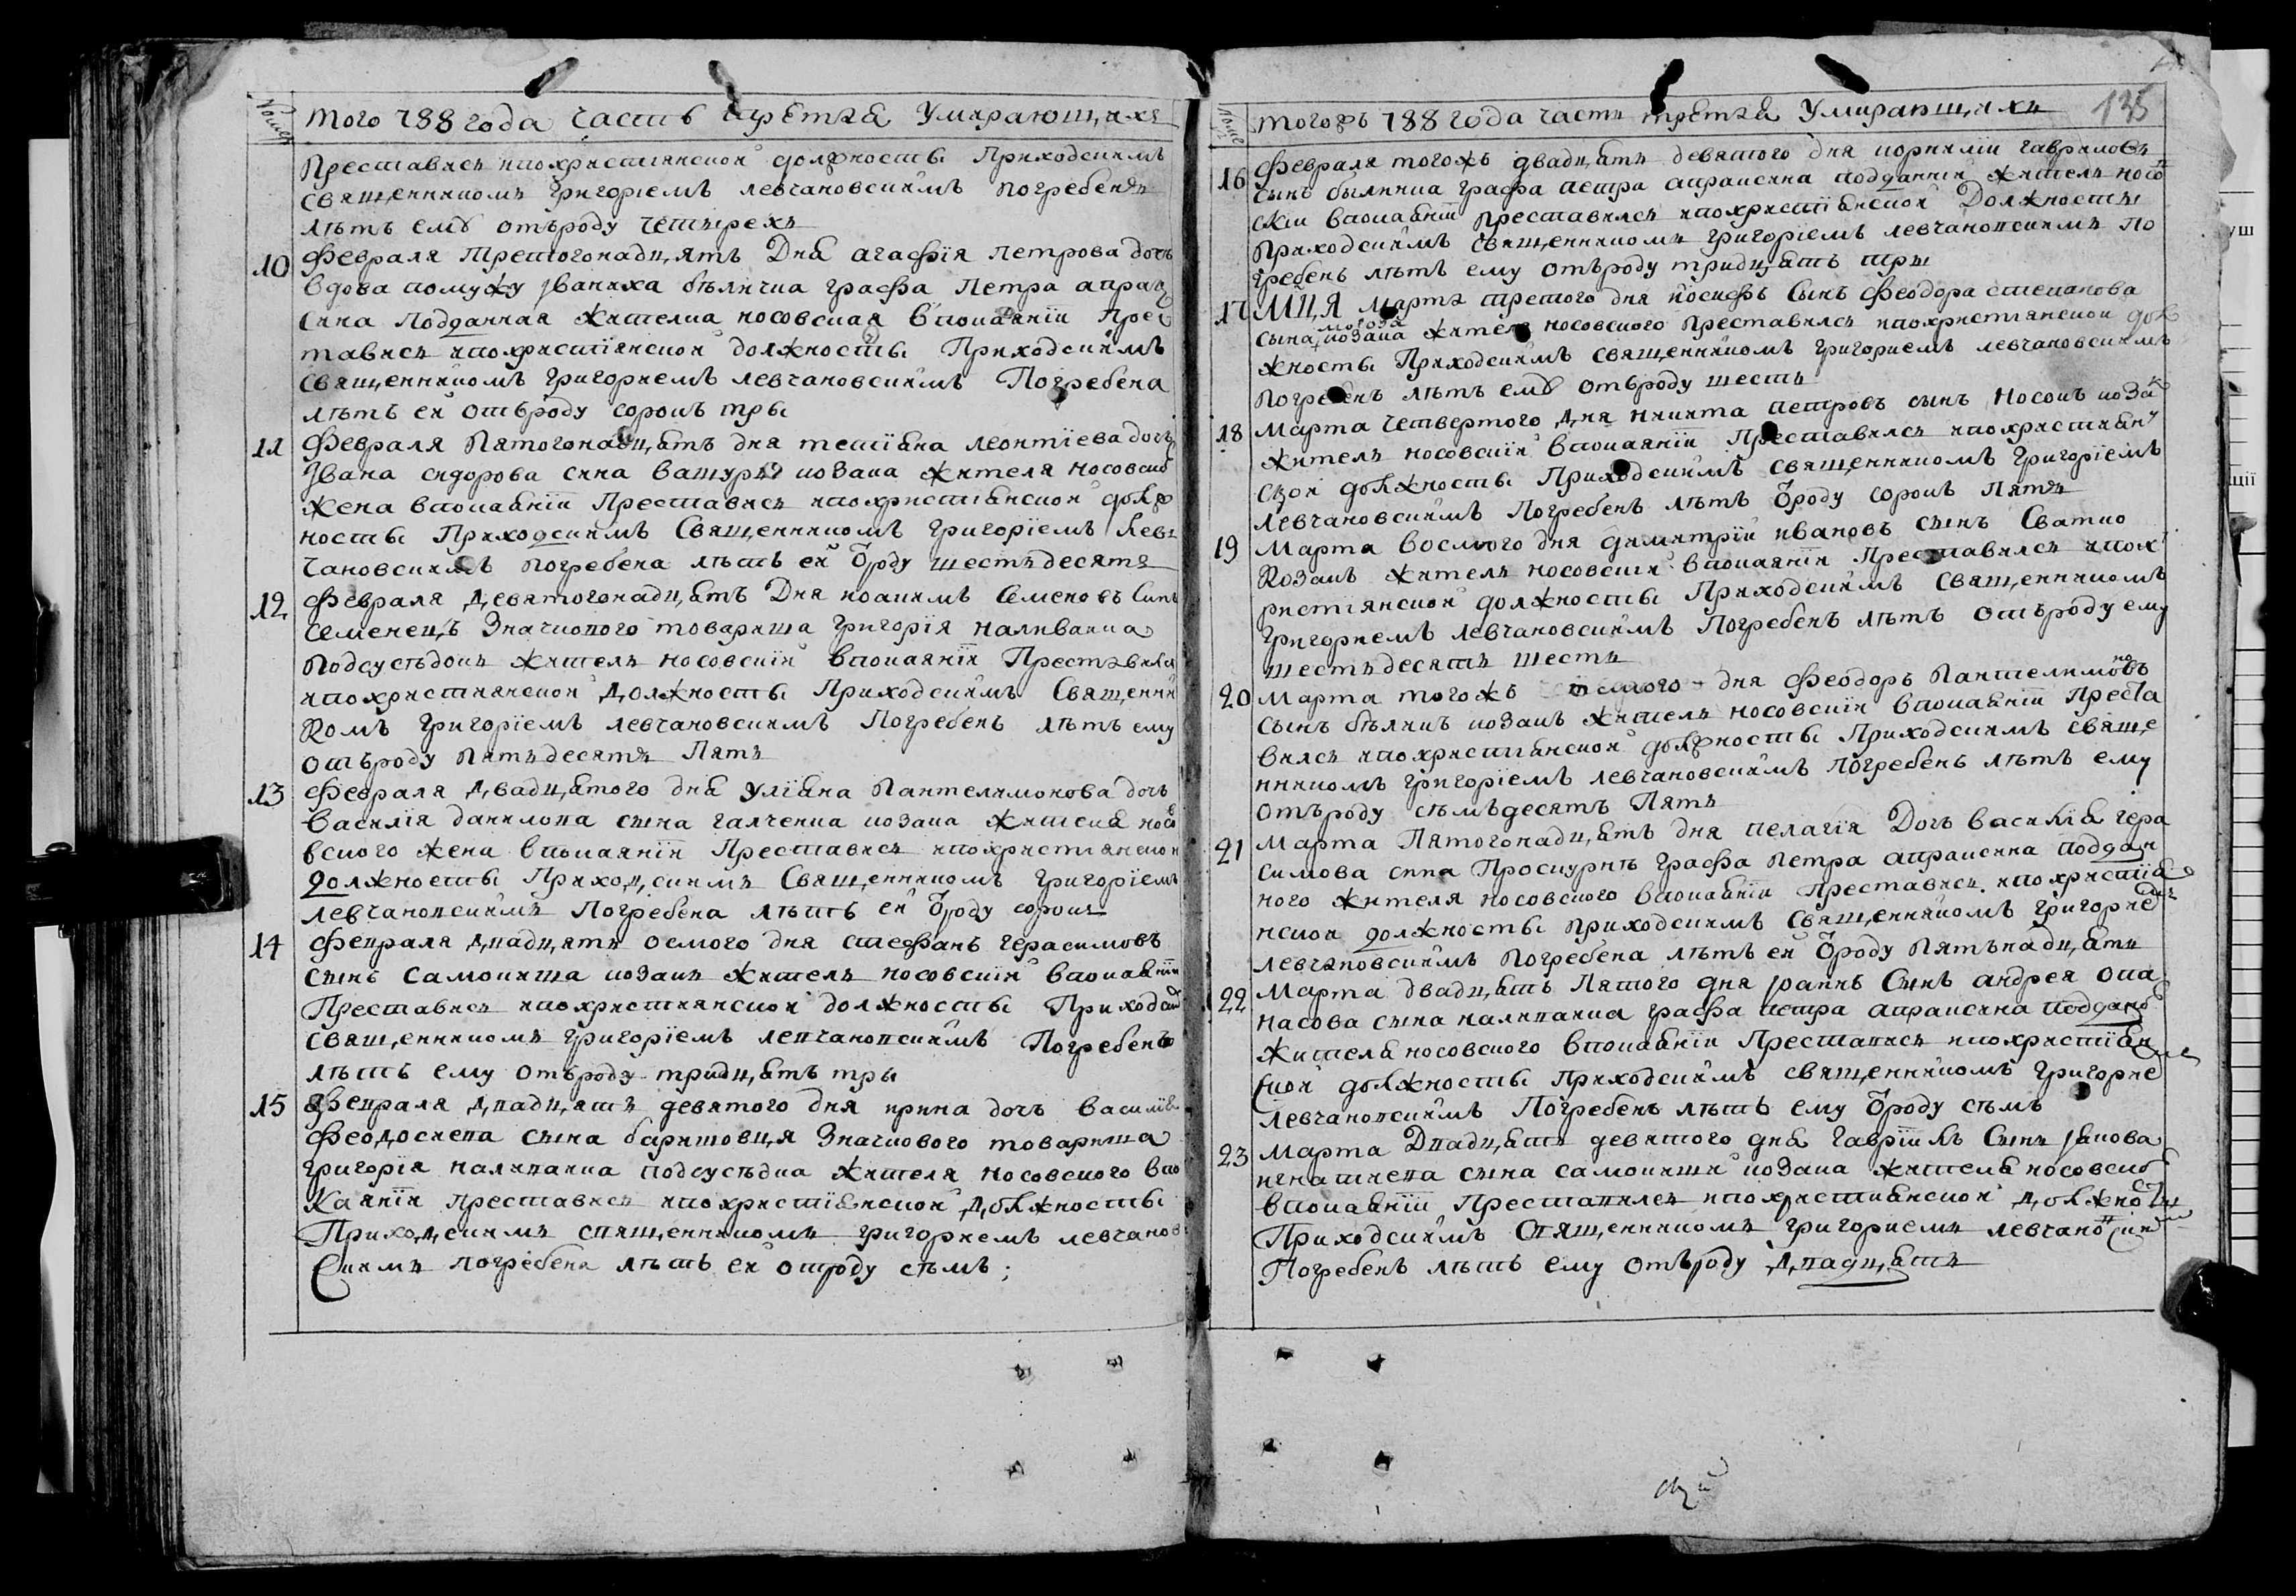 Номер
того 788 года часть третяя Умирающихъ
Преставися и похристиянской должносты Приходскимъ
священникомъ Григоріемъ левчановскимъ погребенъ
лѣтъ ему отъроду четырехъ
10 Февраля Третогонадцять Дня агафія Петрова дочь
вдова по мужу Иваниха бѣличка графа Петра апрак
сина Подданная жителка носовская впокаяніи прес
тавися и похристіянской должносты Приходскимъ
священникомъ Григориемъ левчановскимъ Погребена
лѣтъ ей отъроду сорокъ тры
11 Февраля Пятогонадцять дня тетіяна леонтіева дочь
Ивана сидорова сина вашуры козака жителя носовско
жена впокаяніи Преставися и похристиянской долж
носты Приходскимъ Священникомъ Григоріемъ левъ
чановскимъ погребена лѣтъ ей ѿроду шестьдесятъ
12 Февраля девятогонадцять Дня иоакимъ Семеновъ синъ
семенецъ Значкового товариша Григорія наливайка
подсусѣдокъ житель носовскій впокаяніи Преставися
и похристиянской должносты Приходскимъ Священни
комъ Григоріемъ левчановскимъ Погребенъ лѣтъ ему
отъроду пятьдесятъ Пять
13 Февраля двадцятого дня уліяна Пантелимонова дочь
василія данилова сына галченка козака жителя носо
вского жена впокаяніи Преставися и похристиянской
должносты Приходскимъ Священникомъ Григоріемъ
левчановскимъ Погребена лѣтъ ей ѿроду сорокъ
14 Февраля двадцять осмого дня стефанъ герасимовъ
сынъ самокиша козакъ житель носовскій впокаяніи
Преставися и похристиянской должносты Приходски
священникомъ григоріемъ левчановскимъ Погребенъ
лѣтъ ему отъроду тридцять тры
15 Февраля двадцять девятого дня ирина дочь василія
Феодосиева сына баришовця Значкового товариша
григорія наливайка подсусѣдка жителя носовского впо
каяніи преставися и похристіянской должносты
Приходскимъ священникомъ григориемъ левчанов
скимъ погребена лѣтъ ей отроду сѣмъ;
135
Номер
тогожъ 788 года часть третяя Умирающихъ
16 Февраля тогожъ двадцять девятого дня корнилій гавриловъ
сынъ быличка графа петра апраксина подданній житель носов
скій впокаяніи преставился и похристіянской Должносты
Приходскимъ священникомъ григоріемъ левчановскимъ По
гребенъ лѣтъ ему отъроду тридцять тры
17 МЦЯ Марта третого дня иосифъ Сынъ Феодора степанова
мороза
сына козака жителя носовского Преставился и похристиянской дол
жносты Приходскимъ священникомъ Григориемъ левчановскимъ
погребенъ лѣтъ ему отъроду шесть
18 Марта четвертого дня никита петровъ сынъ Носокъ козак
житель носовскій впокаяніи Преставился и похристиян
ской должносты Приходскимъ священникомъ Григоріемъ
левчановскимъ Погребенъ лѣтъ ѿроду сорокъ Пять
19 Марта восмого дня димитрій ивановъ сынъ Сватко
козакъ житель носовскій впокаяніи Преставился и пох
ристіянской должносты Приходскимъ священникомъ
Григориемъ левчановскимъ Погребенъ лѣтъ отъроду ему
шестьдесятъ шесть
20 Марта тогожъ осмого дня Феодоръ Пантелимоновъ
сынъ бѣликъ козакъ житель носовскій впокаяніи Преста
вился и похристиянской должносты Приходскимъ свяще
нникомъ Григоріемъ левчановскимъ погребенъ лѣтъ ему
отъроду сѣмьдесятъ Пять
21 Марта Пятогонадцять дня пелагія Дочь василія гера
симова сина Проскурнѣ графа Петра апраксина поддан
ного жителя носовского впокаяніи преставися и похристія
нской должносты приходскимъ священникомъ Григорие
левчановскимъ погребена лѣтъ ей ѿроду Пятънадцять
22 Марта двадцять Пятого дня Иоаннъ Сынъ андрея опа
насова сына наливайка графа петра апраксина поддано
жителя носовского впокаяніи Преставися и похристіян
ской должносты Приходскимъ священникомъ Григорие
левчановскимъ Погребенъ лѣтъ ему ѿроду сѣмъ
23 Марта Двадцять девятого дня Гавріилъ Сынъ Иякова
игнатиева сына самокиши козака жителя носовско
впокаяніи Преставился и похристиянской должносты
Приходскимъ Священникомъ григориемъ левчановским
Погребенъ лѣтъ ему отъроду двадцять